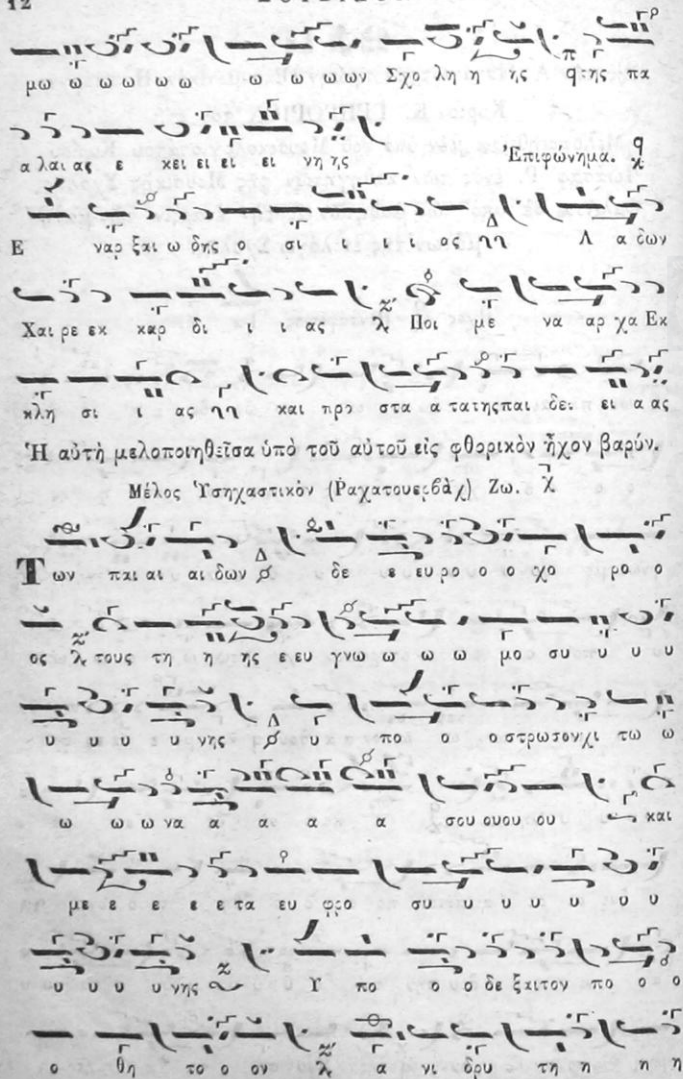 12
μω ω ω ω ω ω ω ω ω ω ων Σχο λη η ης της πα
α λαι ας ε κει ει ει ει νη ης Ἐπιφώνημα.
Ε ναρ ξαι ω δης ο σι ι ι ι ος Λ α δων
Χαι ρε εκ καρ δι ι ι ας Ποι με να αρ χα Εκ
κλη σι ι ας και προ στα α τα της παι δει ει α ας
Ἡ αὐτὴ μελοποιηθεῖσα ὑπὸ τοῦ αὐτοῦ εἰς φθορικὸν ἦχον βαρύν.
Μέλος Ὑσηχαστικὸν (Ῥαχατουερβὰχ) Ζω.
Των παι αι αι δων δε ε ευ ρο ο ο χο ρο ο
ος τους τη η ης ε ευ γνω ω ω ω μο συ υ υ υ
υ υ υ υ νης υ πο ο ο στρωσον χι τω ω
ω ω ω να α α α α σου ου ου ου και
με ε ε ε ε τα ευ φρο συ υ υ υ υ υ υ
υ υ υ υ νης Υ πο ο ο δε ξαι τον πο ο ο
ο θη το ο ον α νι δρυ τη η η η